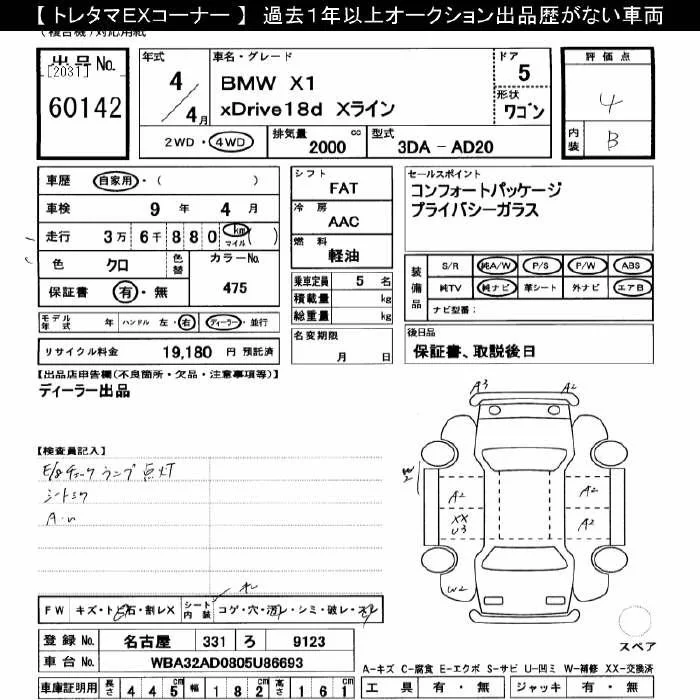 【 トレタマEXコーナー 】 過去1年以上オークション出品歴がない車両
出品No.
[2031]
60142
年式
4
4月
車名・グレード
BMW X1
xDrive18d Xライン
ドア
5
形状
ワゴン
評価点
4
内装
B
2WD・4WD
排気量
2000 cc
型式
3DA - AD20
車歴 自家用・( )
車検 9 年 4 月
走行 3万 6千 8 8 0 km マイル ( )
色 クロ 色替 カラーNo.
保証書 有・無 475
モデル年式 年 ハンドル 左・右 ディーラー・並行
リサイクル料金 19,180 円 預託済
シフト
FAT
冷房
AAC
燃料
軽油
乗車定員 5 名
積載量 kg
総重量 kg
名変期限
月 日
セールスポイント
コンフォートパッケージ
プライバシーガラス
装備品
S/R 純A/W P/S P/W ABS
純TV 純ナビ 革シート 外ナビ エアB
ナビ型番:
後日品
保証書、取説後日
【出品店申告欄(不良箇所・欠品・注意事項等)】
ディーラー出品
【検査員記入】
E/gチェックランプ 点灯
シートスレ
A3
A2
W2
A2
A2
XX
U3
A2
W2
FW キズ・ト石・割レX シート内装 コゲ・穴・・シミ・破レ・スレ
登録 No. 名古屋 331 ろ 9123
車台 No. WBA32AD0805U86693
スペア
A-キズ C-腐食 E-エクボ S-サビ U-凹ミ W-補修 XX-交換済
車庫証明用 長さ 4 4 5 cm 幅 1 8 2 cm 高さ 1 6 1 cm
工具 有・無 ジャッキ 有・無